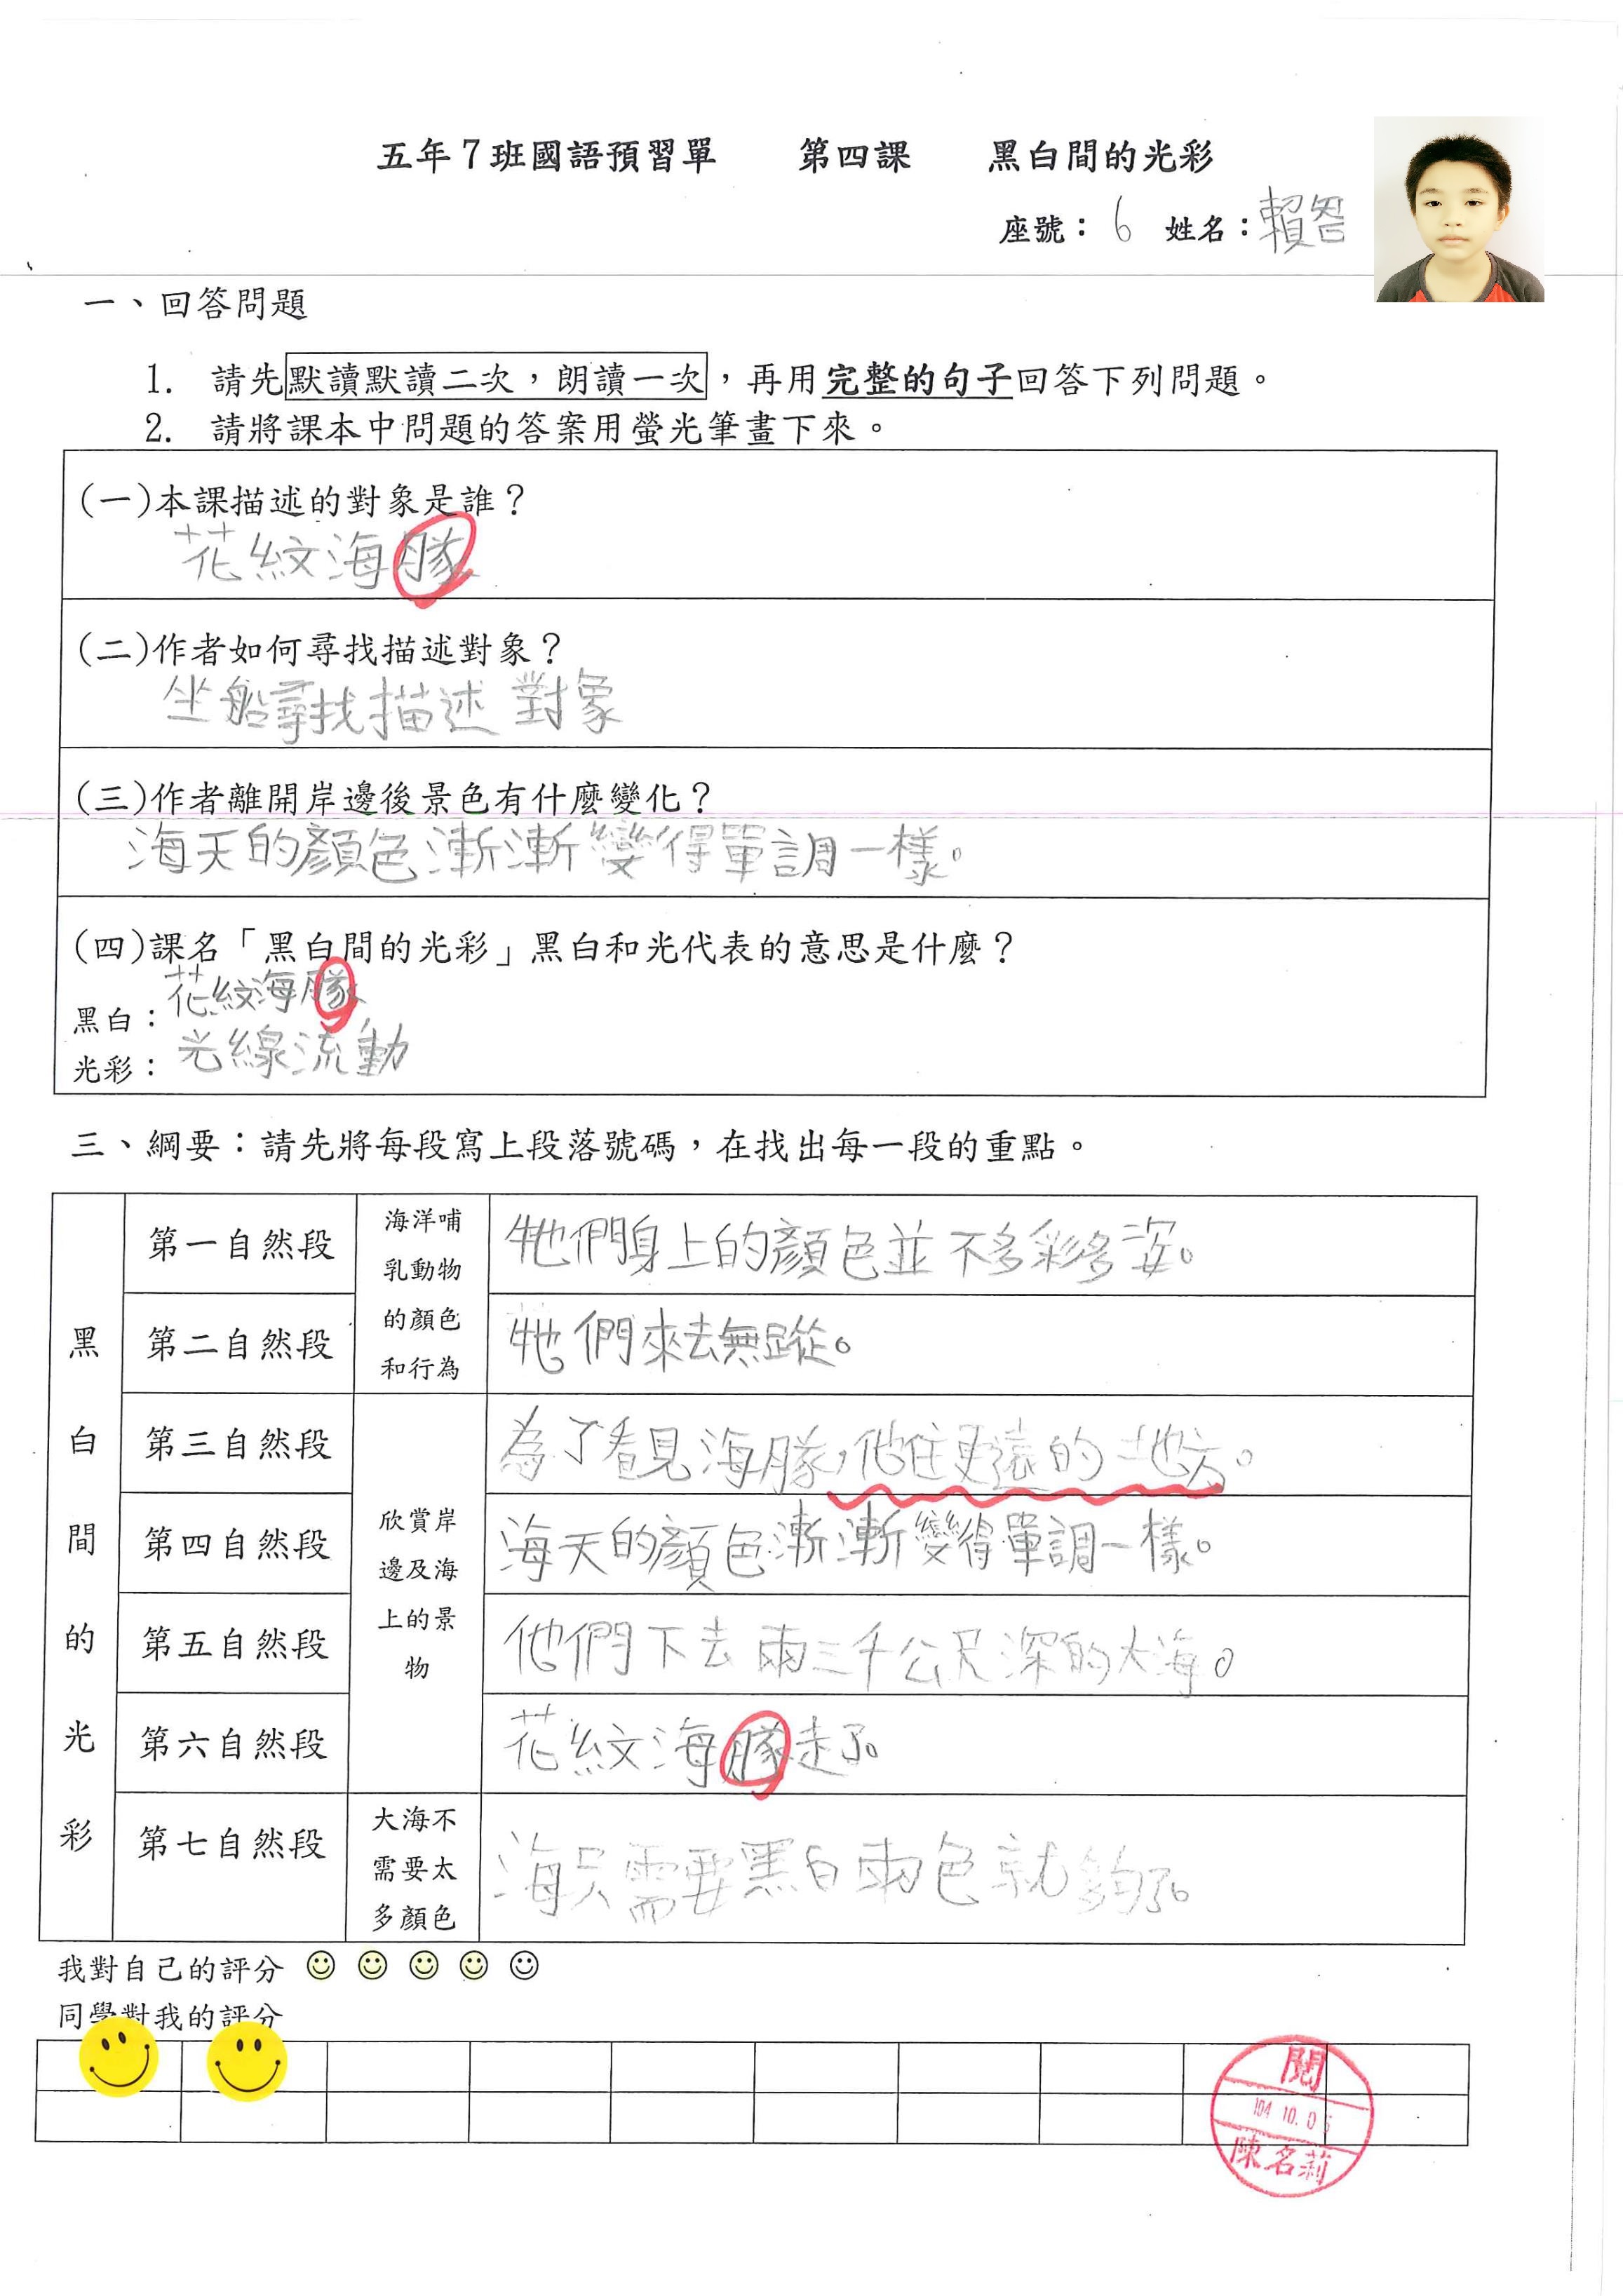 五年7班國語預習單 第四課 黑白間的光彩
座號：6 姓名：賴
一、回答問題
1. 請先默讀默讀二次，朗讀一次，再用完整的句子回答下列問題。
2. 請將課本中問題的答案用螢光筆畫下來。
(一)本課描述的對象是誰？
花紋海豚
(二)作者如何尋找描述對象？
坐船尋找描述對象
(三)作者離開岸邊後景色有什麼變化？
海天的顏色漸漸變得單調一樣。
(四)課名「黑白間的光彩」黑白和光代表的意思是什麼？
黑白：花紋海豚
光彩：光線流動
三、綱要：請先將每段寫上段落號碼，在找出每一段的重點。
黑白間的光彩
海洋哺乳動物的顏色和行為
第一自然段 牠們身上的顏色並不多彩多姿。
第二自然段 牠們來去無蹤。
欣賞岸邊及海上的景物
第三自然段 為了看見海豚，他往更遠的地方。
第四自然段 海天的顏色漸漸變得單調一樣。
第五自然段 他們下去兩三千公尺深的大海。
第六自然段 花紋海豚走了。
大海不需要太多顏色
第七自然段 海只需要黑白兩色就夠了。
我對自己的評分
同學對我的評分
閱
104.10.05
陳名莉